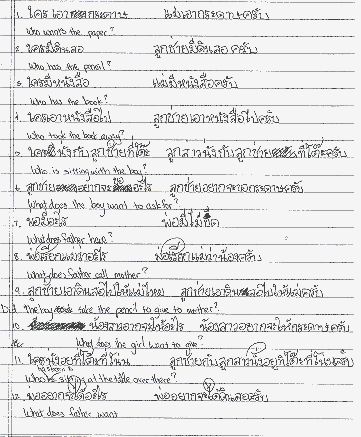 1. ใครเอากระดาษ แม่เอากระดาษครับ
Who wants the paper?
2. ใครมีดินสอ ลูกชายมีดินสอครับ
Who has the pencil?
3. ใครมีหนังสือ แม่มีหนังสือครับ
Who has the book?
4. ใครเอาหนังสือไป ลูกชายเอาหนังสือไปครับ
Who took the book away?
5. ใครนั่งกับลูกชายที่โต๊ะ ลูกสาวนั่งกับลูกชายที่โต๊ะครับ
Who is sitting with the boy?
6. ลูกชายอยากจะขออะไร ลูกชายอยากจะขอกระดาษครับ
What does the boy want to ask for?
7. พ่อมีอะไร พ่อมีไม้ขีด
What does father have?
8. พ่อเรียกแม่ว่าอะไร พ่อเรียกแม่ว่าน้องครับ
What does father call mother?
9. ลูกชายเอาดินสอไปให้แม่ไหม ลูกชายเอาดินสอไปให้แม่ครับ
Did the boy take the pencil to give to mother?
10. น้องสาวอยากจะให้อะไร น้องสาวอยากจะให้กระดาษครับ
What does the girl want to give?
11. ใครนั่งอยู่ที่โต๊ะที่โน่น ลูกชายกับลูกสาวนั่งอยู่ที่โต๊ะที่โน่นครับ
Who is sitting at the table over there?
12. พ่ออยากได้อะไร พ่ออยากจะได้ดินสอครับ
What does father want